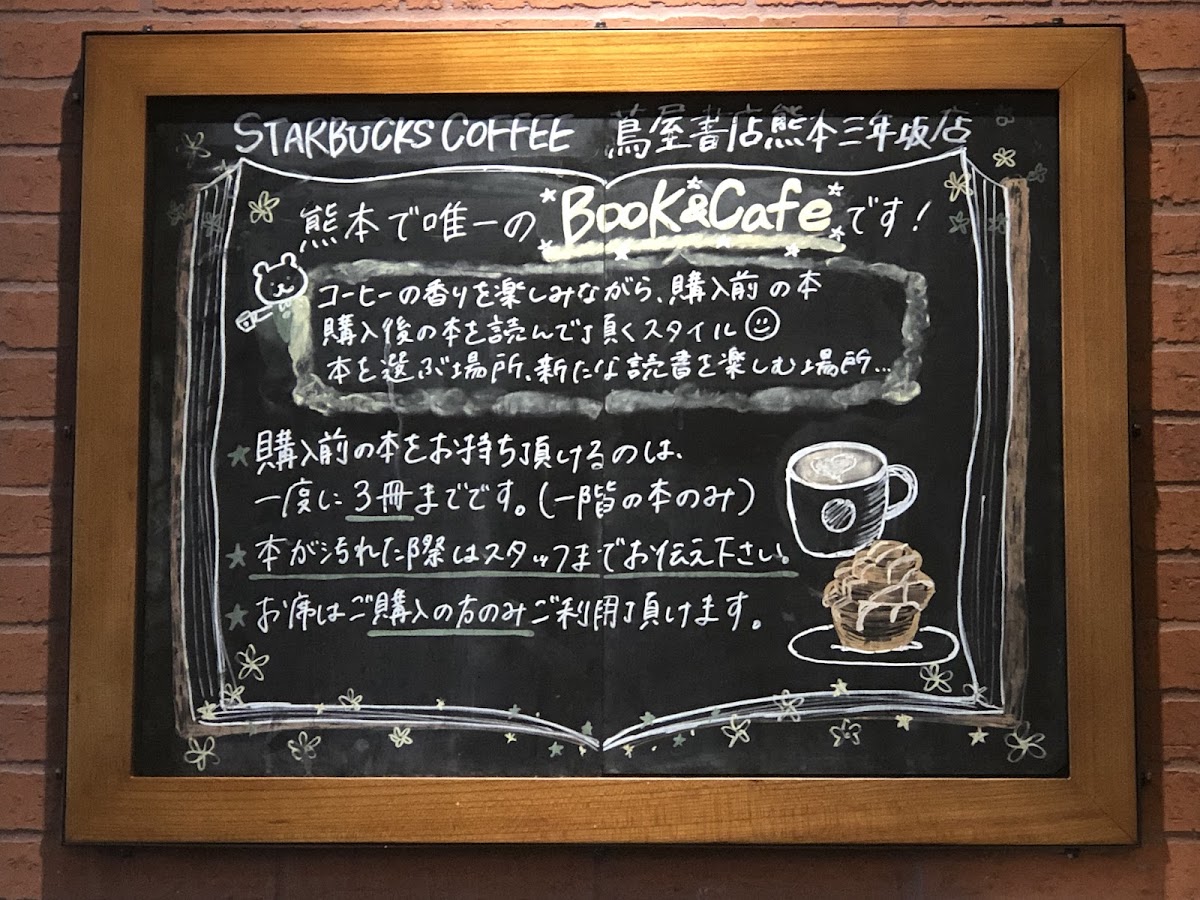 STARBUCKS COFFEE 蔦屋書店熊本三年坂店
熊本で唯一の Book&Cafeです!
コーヒーの香りを楽しみながら、購入前の本
購入後の本を読んで頂くスタイル
本を選ぶ場所、新たな読書を楽しむ場所...
★購入前の本をお持ち頂けるのは、
一度に3冊までです。(一階の本のみ)
★本が汚れた際はスタッフまでお伝え下さい。
★お席はご購入の方のみご利用頂けます。